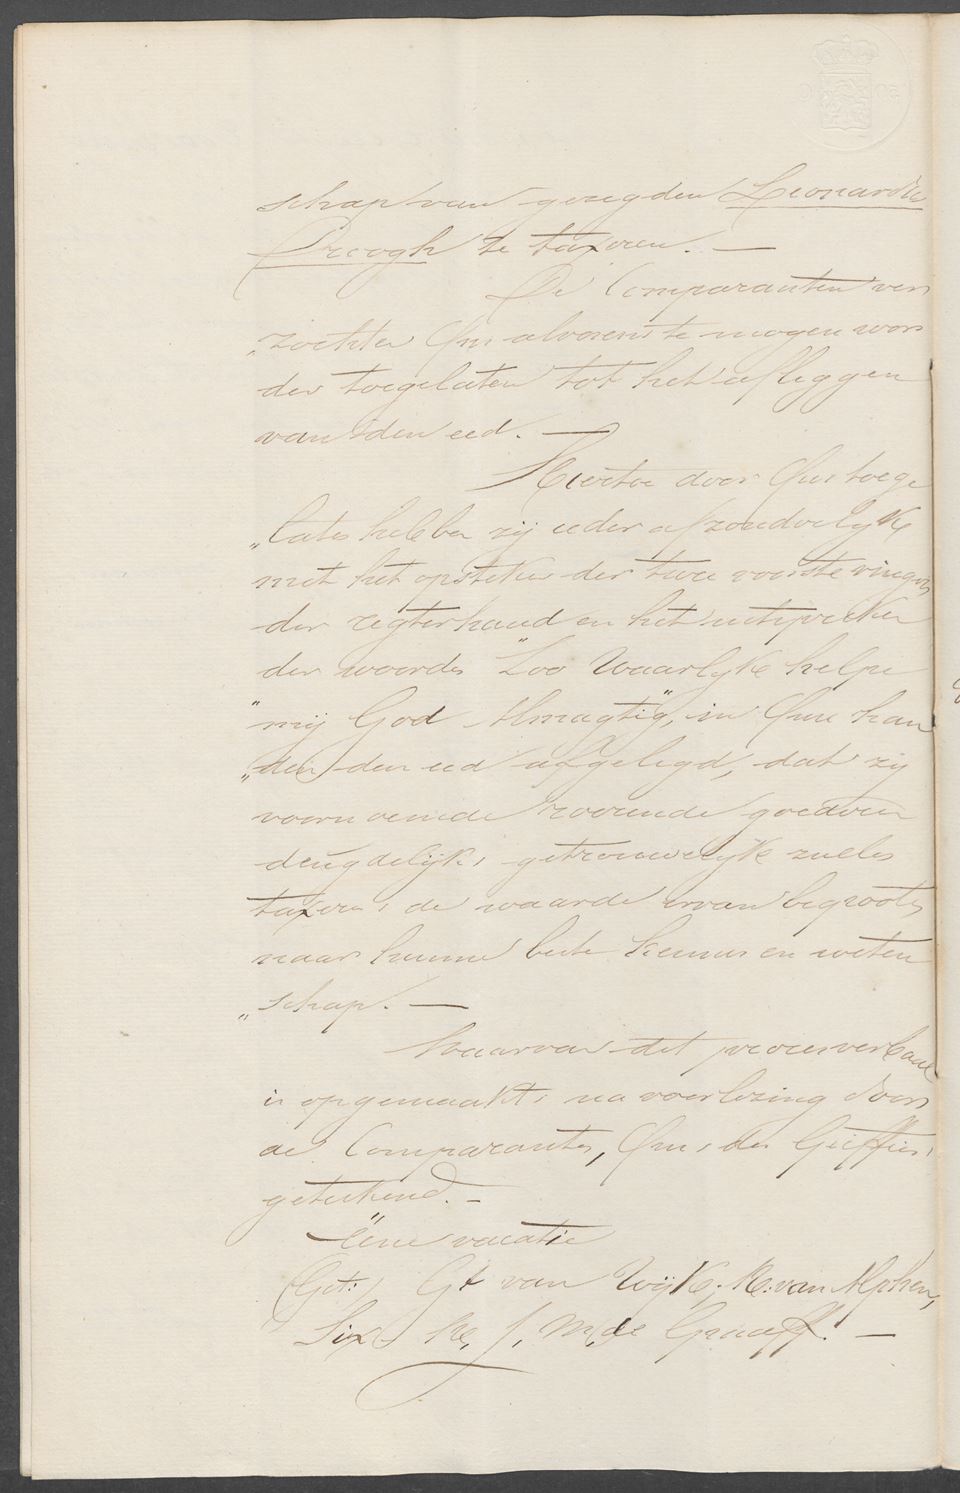 schap van gezegden Leonardus
Droogh te taxeren. —
De Comparanten ver
„zochten Ons alvorens te mogen wor
den toegelaten tot het afleggen
van den eed. —
Hiertoe door Ons toege
„laten hebben zij ieder afzonderlijk
met het opsteken der twee voorste vingers
der regterhand en het uitspreken
der woorden "Zoo Waarlijk helpe
"mij God Almagtig", in Onze han
„den den eed afgelegd, dat zij
voornoemde roerende goederen
deugdelijk, getrouwelijk zullen
taxeren, de waarde ervan begrooten
naar hunne beste kennis en weten
„schap. —
Waarvan dit procesverbaal
is opgemaakt, na voorlezing door
de Comparanten, Ons, den Griffier,
getekend. —
Eene vacatie
(Get:) Gt van Wijk, K: van Alphen,
Six, J, M, de Graaff. —